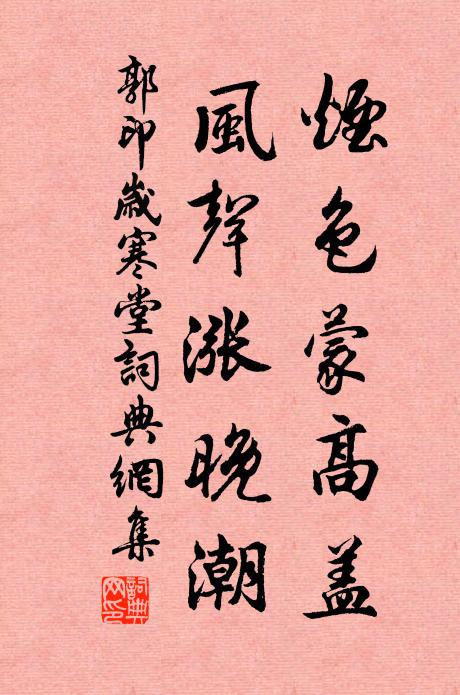 煙色蒙高盖
風聲漲晚潮
郭印歲寒堂詞典網集
詞典网印